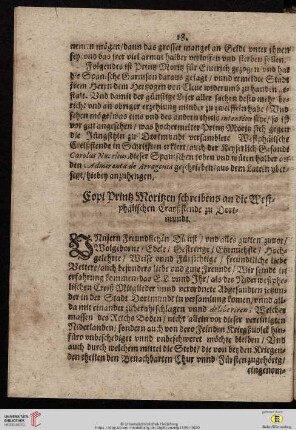 18.
nemen mögen/ dann das grosser mangel an Gelde vnter jhnen
sey/ vnd das jrer viel armut halber verlossen vnd sterben sollen.
Folgendes ist Printz Moritz für Emerich gezogen/ vnd hat
die Spanische Garnison daraus gejagt/ vnnd ermelte Stadt
jrem Herrn dem Hertzogen von Cleue widerumb zu handen ge-
stalt. Vnd damit der günstige Leser aller sachen desto mehr be-
richt vnd an obriger erzehlung minder zu zweiffeln habe/ Vnd
sehen möge/ was eins vnd des andern theils intention sey/ so ist
vor gut angesehen/ was hochermelter Printz Moritz sich gegen
die Jüngsthin zu Dortmundt versamblete Westphälische
Creißstende in Schrifften erkleret/ auch der Keyserlich Gesandt
Carolus Nucelius, dieser Spanischen reden vnd wüten halber an
den Admirante de Arragona geschrieben/ aus dem Latein vber-
setzt/ hiebey anzuhengen.
Copi Printz Moritzen schreibens an die West-
phälischen Crayßstende zu Dort-
mundt.
VNnsern Freundlichen Gruß/ vnd alles gutten zuvor/
Wolgeborne/ Edle/ Gestrenge/ Ernvheste/ Hoch-
gelehrte/ Weise vnnd Fürsichtige/ freundliche liebe
Vettern/ auch besonders liebe vnd gute Freunde/ Wir seindt in
erfahrung kommen/ das E. L. vnnd Jhr/ als des Niderwestphe-
lischen Creiß Mitglieder vnnd verordnete Abgesandten itzund
der in der Stadt Dortmundt in versamlung komen/ vnnd all-
da mit einander zuberathschlagen vnnd
massen des Reichs Boden/ nicht allein vor dieser vereinigten
Niderlanden/ sondern auch von dero Feinden Kriegßuolck hin-
füro vnbeschediget vnd vnbeschweret möchte bleiben/ Vnd
auch durch welchen mittel die Stedt/ die von beyden Kriegen-
den theilen den Benachbarten Chur vnnd Fürsten zugehörig/
eingenom-
UNIVERSITÄTS-
BIBLIOTHEK
HEIDELBERG
© Universitätsbibliothek Heidelberg